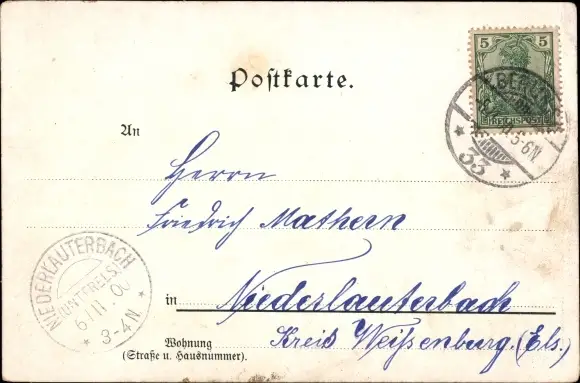 5
REICHSPOST
BERLIN
5-6N
33
Postkarte.
An
Herrn
Friedrich Mathern
in Niederlauterbach
Kreis Weißenburg (Els.)
Wohnung
(Straße u. Hausnummer).
NIEDERLAUTERBACH
(UNTERELS)
00
3-4N